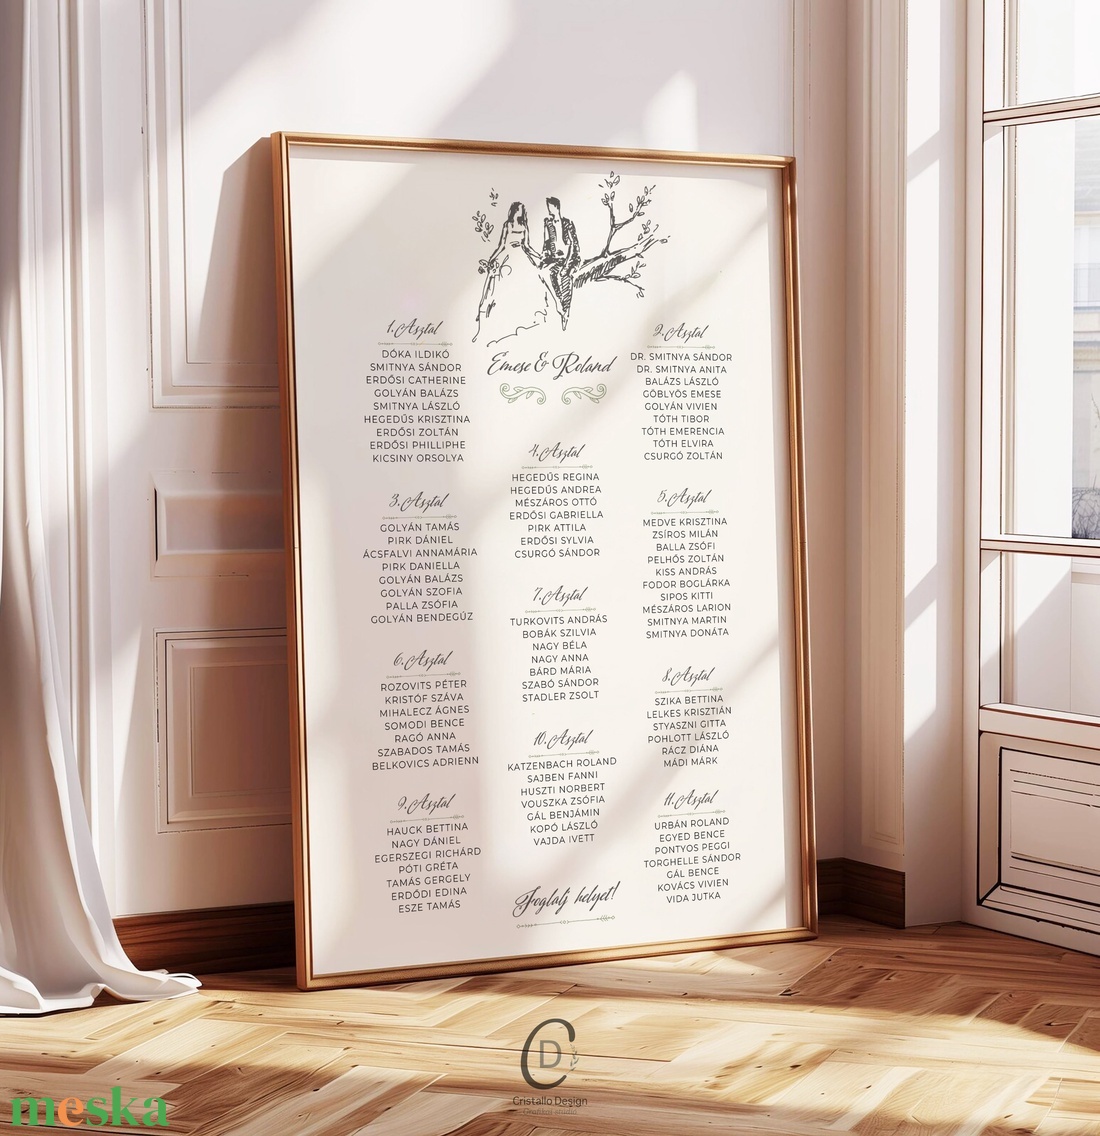 Emese & Roland
1. Asztal
DÓKA ILDIKÓ
SMITNYA SÁNDOR
ERDŐSI CATHERINE
GOLYÁN BALÁZS
SMITNYA LÁSZLÓ
HEGEDŰS KRISZTINA
ERDŐSI ZOLTÁN
ERDŐSI PHILLIPHE
KICSINY ORSOLYA
2. Asztal
DR. SMITNYA SÁNDOR
DR. SMITNYA ANITA
BALÁZS LÁSZLÓ
GÖBLYÖS EMESE
GOLYÁN VIVIEN
TÓTH TIBOR
TÓTH EMERENCIA
TÓTH ELVIRA
CSURGÓ ZOLTÁN
3. Asztal
GOLYÁN TAMÁS
PIRK DÁNIEL
ÁCSFALVI ANNAMÁRIA
PIRK DANIELLA
GOLYÁN BALÁZS
GOLYÁN SZOFIA
PALLA ZSÓFIA
GOLYÁN BENDEGÚZ
4. Asztal
HEGEDŰS REGINA
HEGEDŰS ANDREA
MÉSZÁROS OTTÓ
ERDŐSI GABRIELLA
PIRK ATTILA
ERDŐSI SYLVIA
CSURGÓ SÁNDOR
5. Asztal
MEDVE KRISZTINA
ZSÍROS MILÁN
BALLA ZSÓFI
PELHŐS ZOLTÁN
KISS ANDRÁS
FODOR BOGLÁRKA
SIPOS KITTI
MÉSZÁROS LARION
SMITNYA MARTIN
SMITNYA DONÁTA
6. Asztal
ROZOVITS PÉTER
KRISTÓF SZÁVA
MIHALECZ ÁGNES
SOMODI BENCE
RAGÓ ANNA
SZABADOS TAMÁS
BELKOVICS ADRIENN
7. Asztal
TURKOVITS ANDRÁS
BOBÁK SZILVIA
NAGY BÉLA
NAGY ANNA
BÁRD MÁRIA
SZABÓ SÁNDOR
STADLER ZSOLT
8. Asztal
SZIKA BETTINA
LELKES KRISZTIÁN
STYASZNI GITTA
POHLOTT LÁSZLÓ
RÁCZ DIÁNA
MÁDI MÁRK
9. Asztal
HAUCK BETTINA
NAGY DÁNIEL
EGERSZEGI RICHÁRD
PÓTI GRÉTA
TAMÁS GERGELY
ERDŐDI EDINA
ESZE TAMÁS
10. Asztal
KATZENBACH ROLAND
SAJBEN FANNI
HUSZTI NORBERT
VOUSZKA ZSÓFIA
GÁL BENJÁMIN
KOPÓ LÁSZLÓ
VAJDA IVETT
11. Asztal
URBÁN ROLAND
EGYED BENCE
PONTYOS PEGGI
TORGHELLE SÁNDOR
GÁL BENCE
KOVÁCS VIVIEN
VIDA JUTKA
Foglalj helyet!
CD
Cristallo Design
Grafikai studio
meska